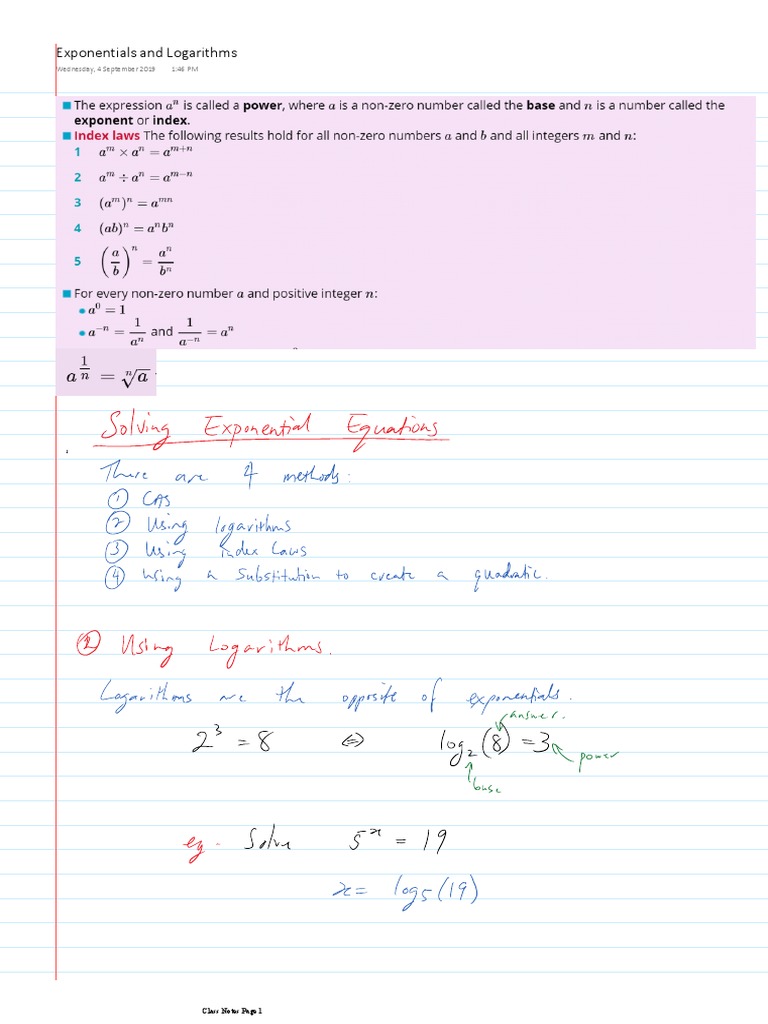 Exponentials and Logarithms
Wednesday, 4 September 2019 1:46 PM
■ The expression aⁿ is called a power, where a is a non-zero number called the base and n is a number called the
exponent or index.
■ Index laws The following results hold for all non-zero numbers a and b and all integers m and n:
1 aᵐ × aⁿ = aᵐ⁺ⁿ
2 aᵐ ÷ aⁿ = aᵐ⁻ⁿ
3 (aᵐ)ⁿ = aᵐⁿ
4 (ab)ⁿ = aⁿbⁿ
5 (a/b)ⁿ = aⁿ/bⁿ
■ For every non-zero number a and positive integer n:
• a⁰ = 1
• a⁻ⁿ = 1/aⁿ and 1/a⁻ⁿ = aⁿ
a^(1/n) = ⁿ√a
Solving Exponential Equations
There are 4 methods:
① CAS
② Using logarithms
③ Using Index Laws
④ Using a Substitution to create a quadratic.
② Using Logarithms.
Logarithms are the opposite of exponentials.
answer.
2³ = 8 ⇔ log₂(8) = 3
power
base
eg. Solve 5ˣ = 19
x = log₅(19)
Class Notes Page 1